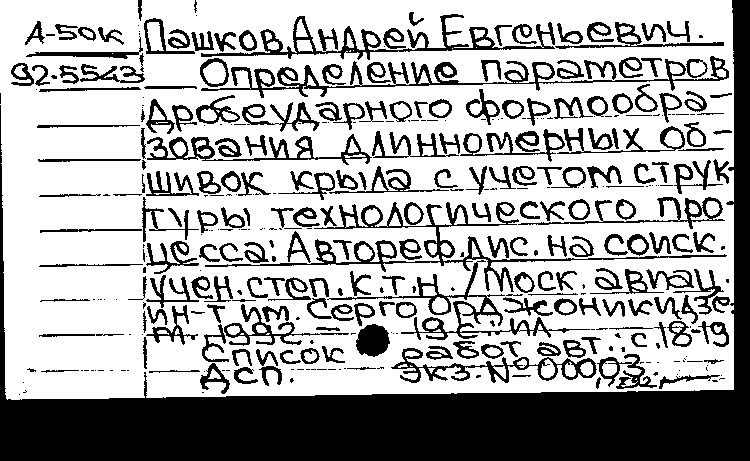 А-50к Пашков, Андрей Евгеньевич.
92-5543 Определение параметров
дробеударного формообра-
зования длинномерных об-
шивок крыла с учетом струк-
туры технологического про-
цесса: Автореф. дис. на соиск.
учен. степ. к.т.н. / Моск. авиац.
ин-т им. Серго Орджоникидзе.
М. 1992. - 19 с.: ил.
Список работ авт.: с. 18-19
Дсп. Экз. № 00003.